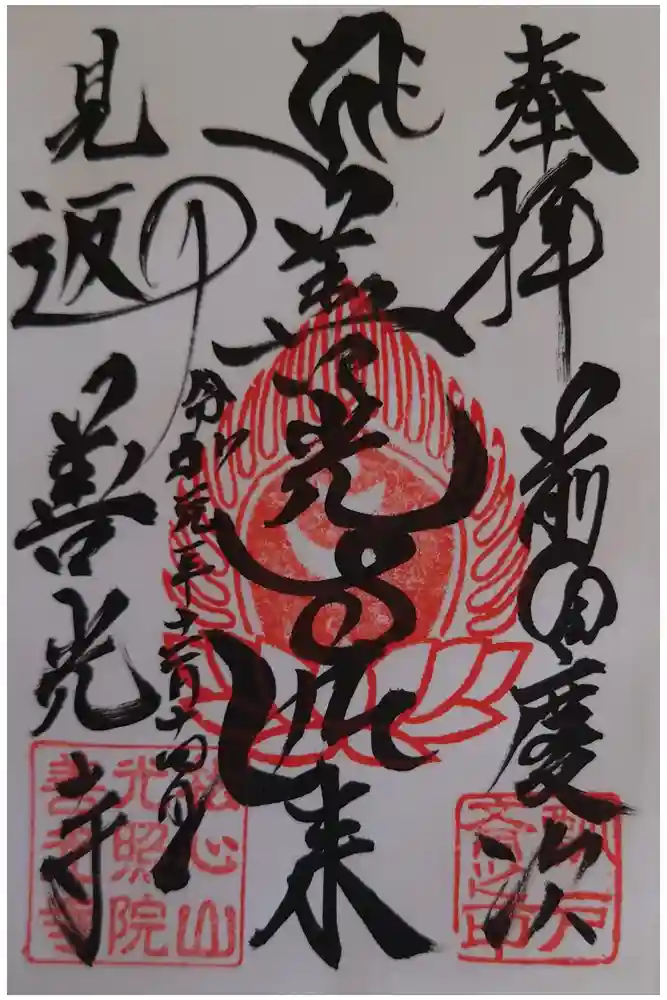 奉拝
前田慶次
善光
如来
令和元年十一月十四日
見返り
善光寺
松心山
光照院
善光寺